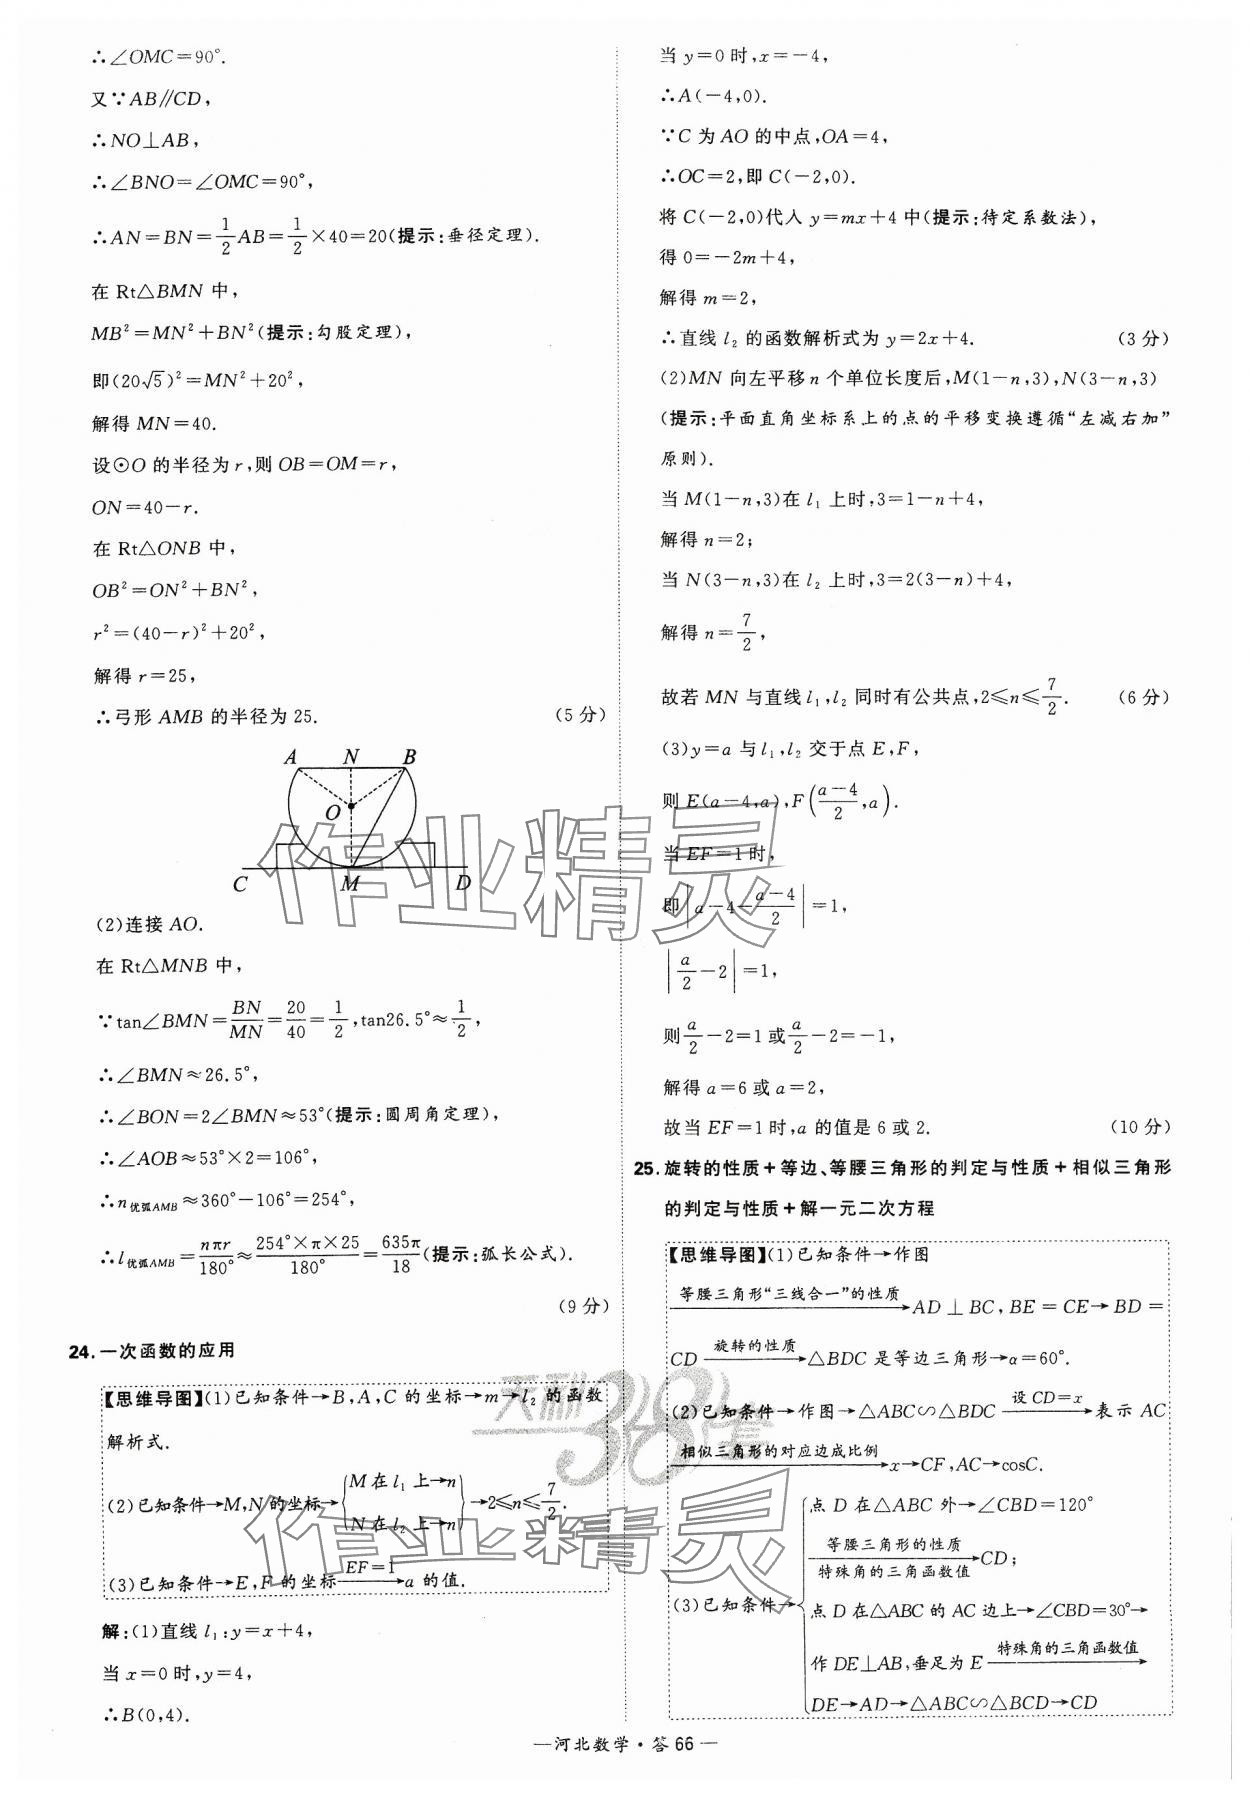 ∴∠OMC=90°.
又∵AB∥CD,
∴NO⊥AB,
∴∠BNO=∠OMC=90°,
∴AN=BN=1/2AB=1/2×40=20(提示:垂径定理).
在 Rt△BMN 中,
MB²=MN²+BN²(提示:勾股定理),
即(20√5)²=MN²+20²,
解得 MN=40.
设⊙O 的半径为 r,则 OB=OM=r,
ON=40-r.
在 Rt△ONB 中,
OB²=ON²+BN²,
r²=(40-r)²+20²,
解得 r=25,
∴弓形 AMB 的半径为 25. (5 分)
A N B
O
C M D
(2)连接 AO.
在 Rt△MNB 中,
∵tan∠BMN=BN/MN=20/40=1/2,tan26.5°≈1/2,
∴∠BMN≈26.5°,
∴∠BON=2∠BMN≈53°(提示:圆周角定理),
∴∠AOB≈53°×2=106°,
∴n优弧AMB≈360°-106°=254°,
∴l优弧AMB=nπr/180°≈254°×π×25/180°=635π/18(提示:弧长公式).
(9 分)
24.一次函数的应用
【思维导图】(1)已知条件→B,A,C 的坐标→m→l₂ 的函数
解析式.
(2)已知条件→M,N 的坐标→{M 在 l₁ 上→n
N 在 l₂ 上→n}→2≤n≤7/2.
(3)已知条件→E,F 的坐标 EF=1→a 的值.
解:(1)直线 l₁:y=x+4,
当 x=0 时,y=4,
∴B(0,4).
当 y=0 时,x=-4,
∴A(-4,0).
∵C 为 AO 的中点,OA=4,
∴OC=2,即 C(-2,0).
将 C(-2,0)代入 y=mx+4 中(提示:待定系数法),
得 0=-2m+4,
解得 m=2,
∴直线 l₂ 的函数解析式为 y=2x+4. (3 分)
(2)MN 向左平移 n 个单位长度后,M(1-n,3),N(3-n,3)
(提示:平面直角坐标系上的点的平移变换遵循“左减右加”
原则).
当 M(1-n,3)在 l₁ 上时,3=1-n+4,
解得 n=2;
当 N(3-n,3)在 l₂ 上时,3=2(3-n)+4,
解得 n=7/2,
故若 MN 与直线 l₁,l₂ 同时有公共点,2≤n≤7/2. (6 分)
(3)y=a 与 l₁,l₂ 交于点 E,F,
则 E(a-4,a),F((a-4)/2,a).
当 EF=1 时,
即|a-4-(a-4)/2|=1,
|a/2-2|=1,
则a/2-2=1 或a/2-2=-1,
解得 a=6 或 a=2,
故当 EF=1 时,a 的值是 6 或 2. (10 分)
25.旋转的性质+等边、等腰三角形的判定与性质+相似三角形
的判定与性质+解一元二次方程
【思维导图】(1)已知条件→作图
等腰三角形“三线合一”的性质→AD⊥BC,BE=CE→BD=
CD 旋转的性质→△BDC 是等边三角形→α=60°.
(2)已知条件→作图→△ABC∽△BDC 设 CD=x→表示 AC
相似三角形的对应边成比例→x→CF,AC→cosC.
(3)已知条件→{点 D 在△ABC 外→∠CBD=120°
等腰三角形的性质 特殊角的三角函数值→CD;
点 D 在△ABC 的 AC 边上→∠CBD=30°→
作 DE⊥AB,垂足为 E 特殊角的三角函数值→
DE→AD→△ABC∽△BCD→CD
作业精灵
天利38套
作业精灵
—河北数学·答 66—